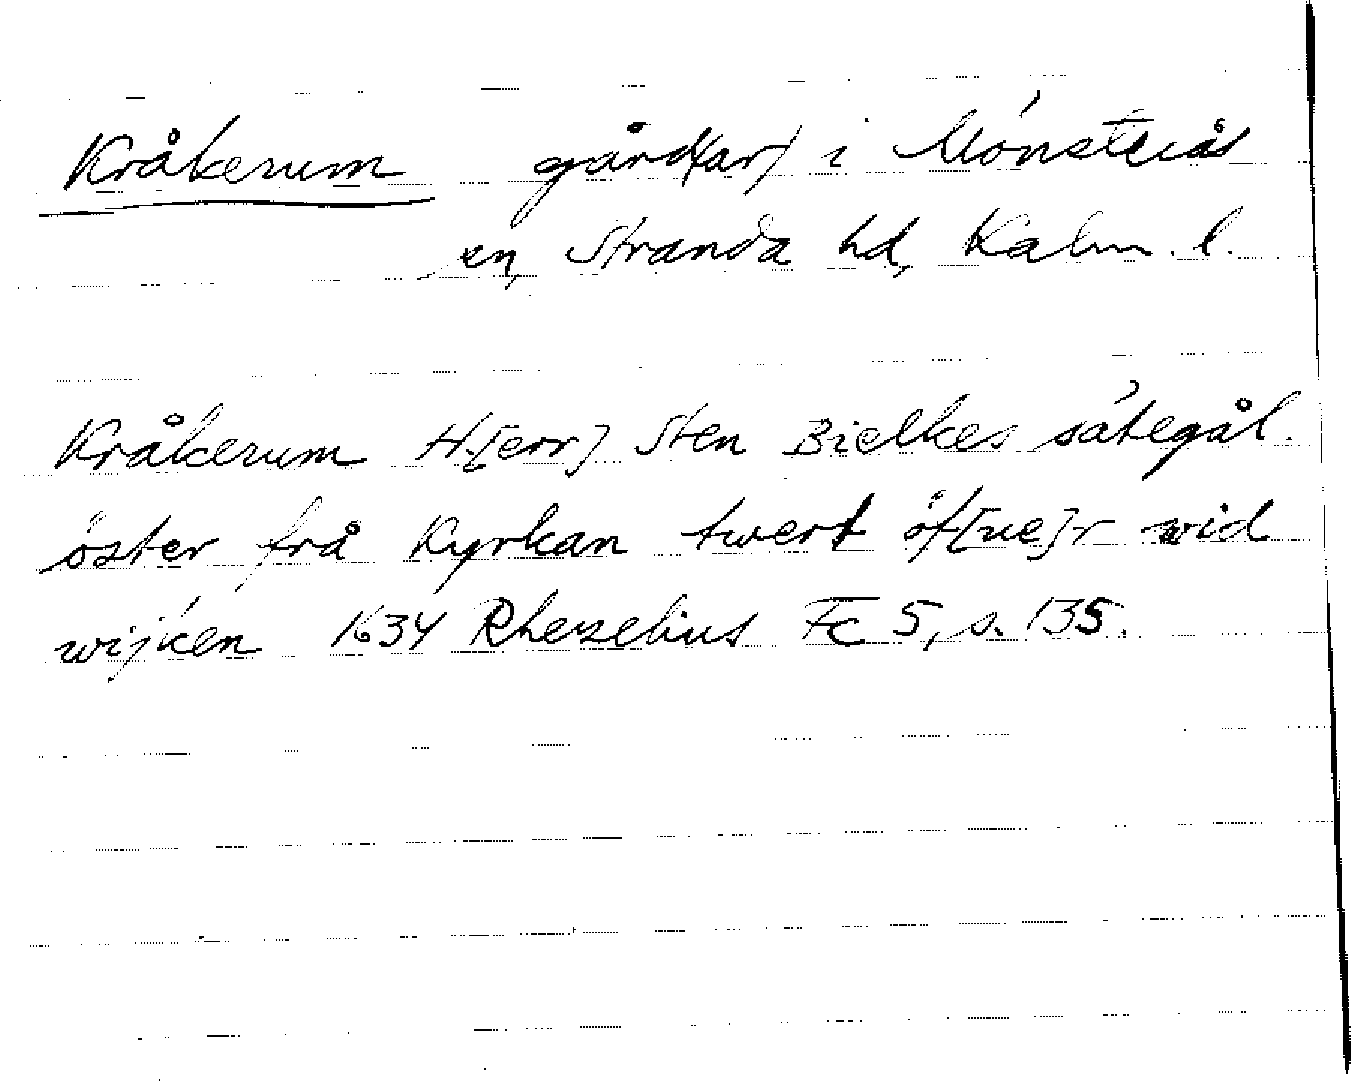 Kråkerum gård(ar) i Mönsterås
en, Stranda hd, Kalm. l.
Kråkerum H.[err] Sten Bielkes sätegål.
öster frå Kyrkan twert öf[ue]r wid
wijken 1634 Rhezelius Fc 5, s. 135.